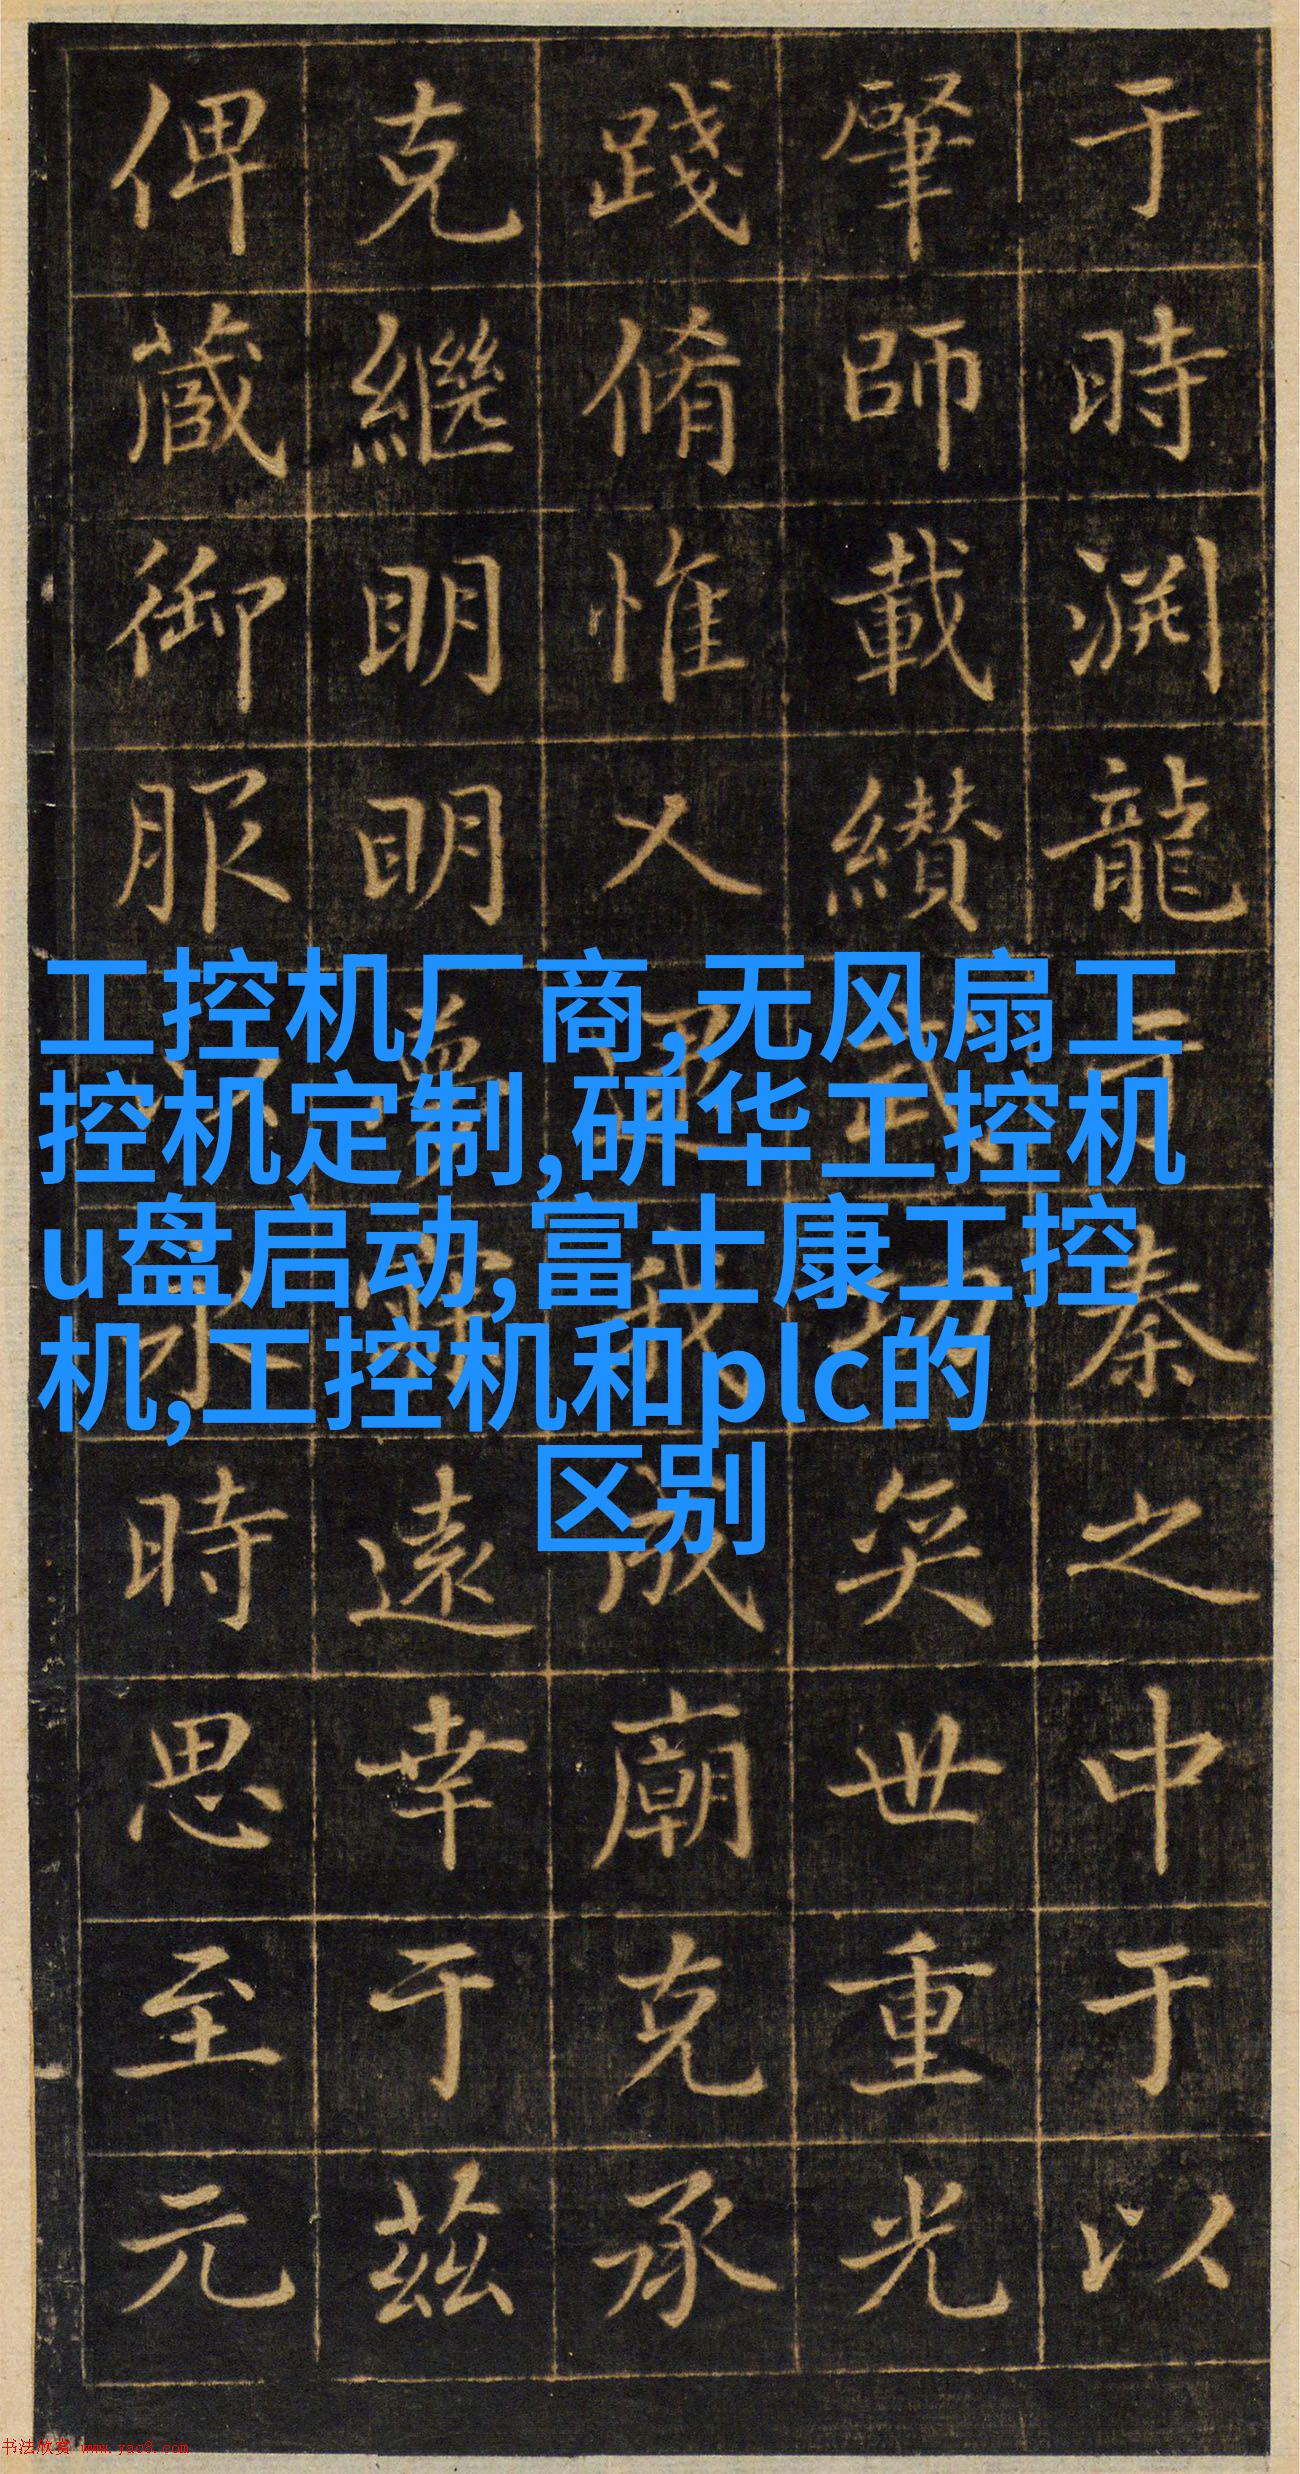 于時渊龍于秦之中于以
肇師載纘武功奕世重光
踐脩惟乂我成廟克承
克繼明明遠幸于茲
俾蕆御服永時思至元
工控机厂商,无风扇工
控机定制,研华工控机
u盘启动,富士康工控
机,工控机和plc的
区别
书法欣赏 www.yac8.com